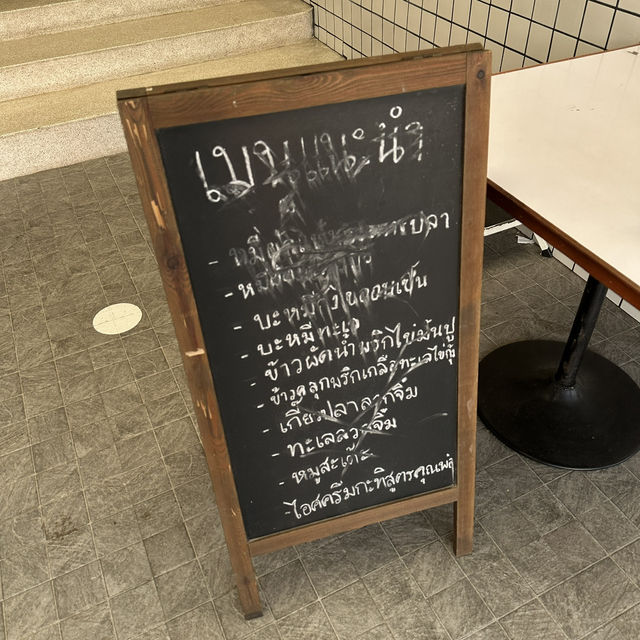 เมนูแนะนำ
- หมี่
- หมี่
- บะหมี่
- บะหมี่ทะเล
- ข้าวผัดน้ำพริกไข่มันปู
- ข้าวคลุกพริกเกลือทะเลไข่กุ้ง
- เกี๊ยวปลาลวกจิ้ม
- ทะเลลวกจิ้ม
- หมูสะเต๊ะ
- ไอศครีมกะทิสูตรคุณพ่อ